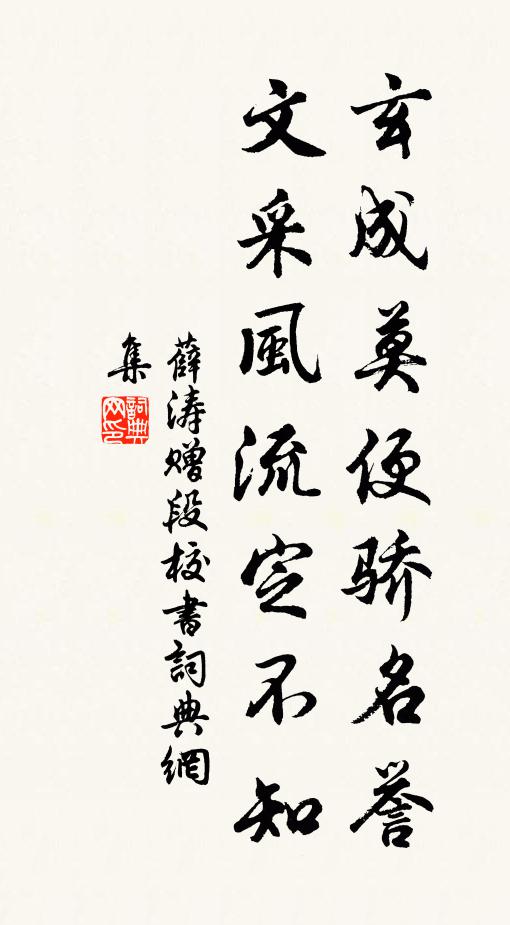 玄成莫便骄名誉
文采風流定不知
薛涛赠段校書詞典網
集
詞典
网印